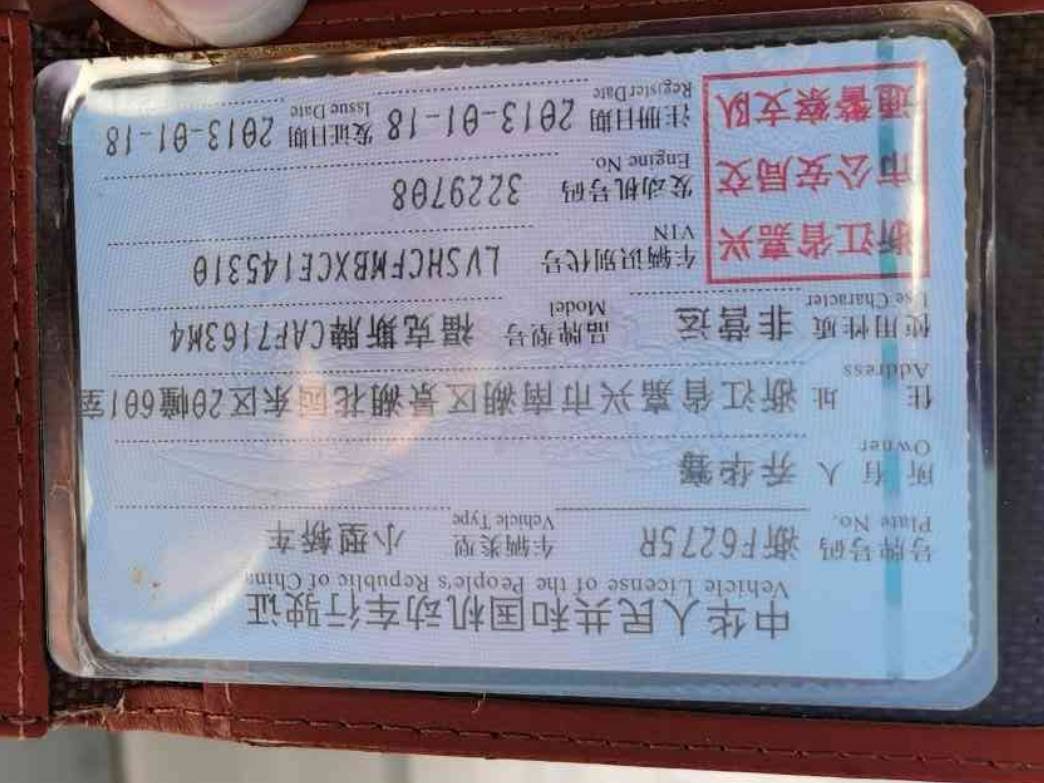 中华人民共和国机动车行驶证
Vehicle License of the People's Republic of China
号牌号码 浙F6275R 车辆类型 小型轿车
Plate No. Vehicle Type
所有人 乔华骞
Owner
住址 浙江省嘉兴市南湖区景湖花园东区20幢601室
Address
使用性质 非营运 品牌型号 福克斯牌CAF7163M4
Use Character Model
浙江省嘉兴
市公安局交
通警察支队
车辆识别代号 LVSHCFMBXCE145310
VIN
发动机号码 3229708
Engine No.
注册日期 2013-01-18 发证日期 2013-01-18
Register Date Issue Date